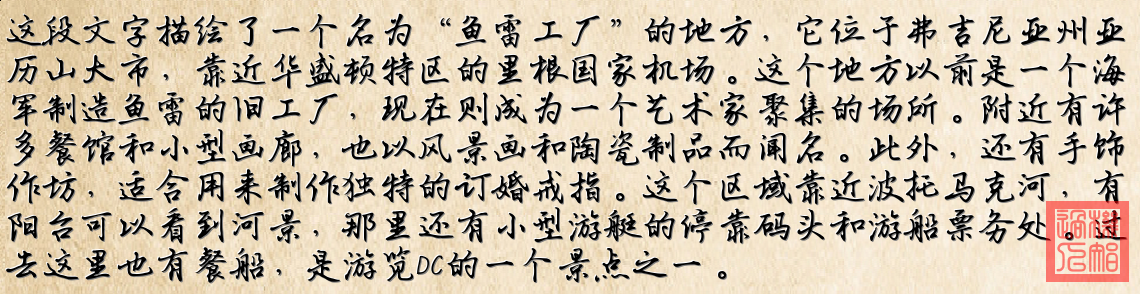 这段文字描绘了一个名为“鱼雷工厂”的地方，它位于弗吉尼亚州亚
历山大市，靠近华盛顿特区的里根国家机场。这个地方以前是一个海
军制造鱼雷的旧工厂，现在则成为一个艺术家聚集的场所。附近有许
多餐馆和小型画廊，也以风景画和陶瓷制品而闻名。此外，还有手饰
作坊，适合用来制作独特的订婚戒指。这个区域靠近波托马克河，有
阳台可以看到河景，那里还有小型游艇的停靠码头和游船票务处。过
去这里也有餐船，是游览DC的一个景点之一。